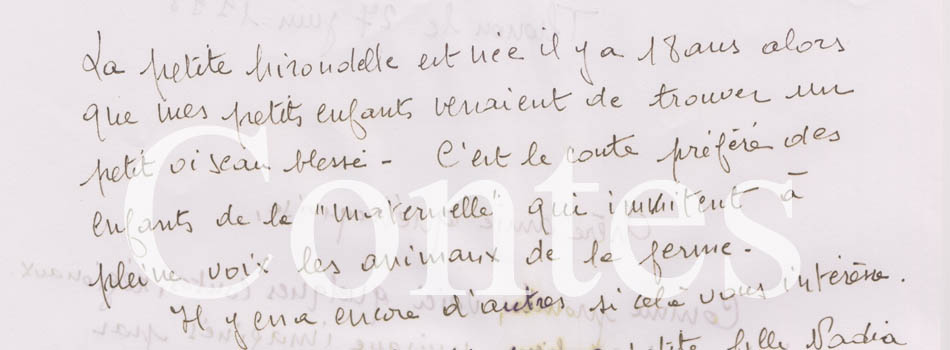 La petite hirondelle est née il y a 18 ans alors
que mes petits enfants venaient de trouver un
petit oiseau blessé - C'est le conte préféré des
enfants de la "maternelle" qui immitent à
pleine voix les animaux de la ferme -
Il y en a encore d'autres, si celà vous intéresse.
petite fille Nadia
Contes